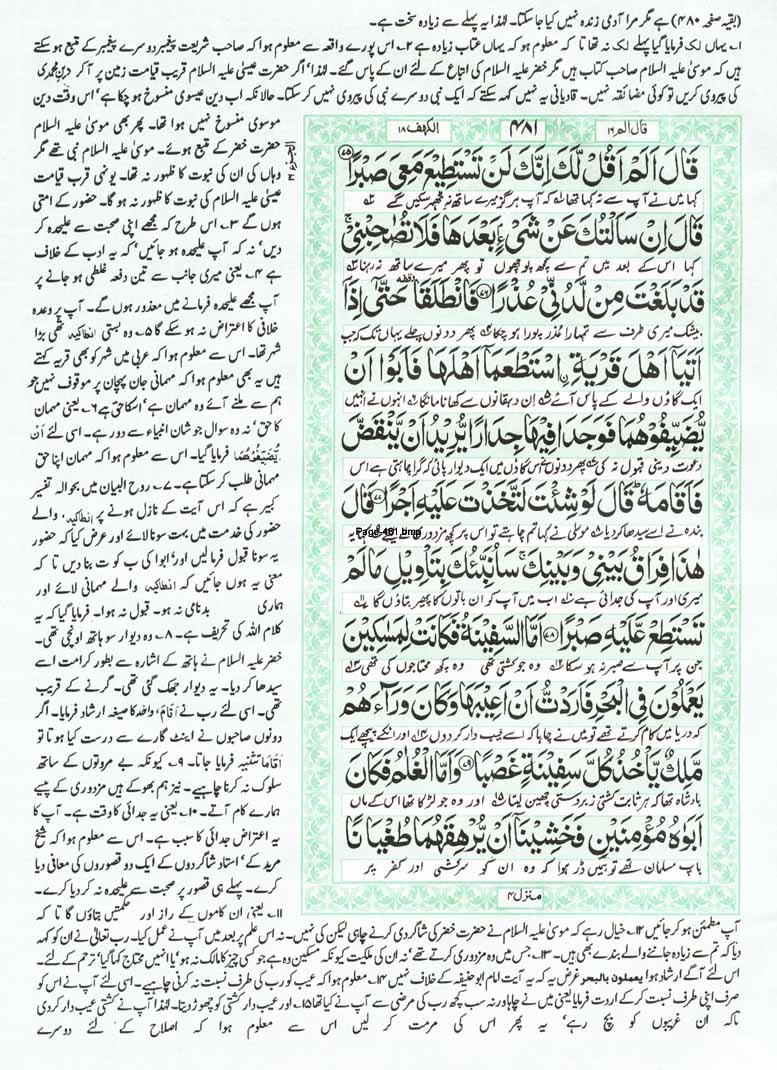 (بقیہ صفحہ ۴۸۰) ہے مگر مرا آدمی زندہ نہیں کیا جا سکتا۔ لہٰذا یہ پہلے سے زیادہ سخت ہے۔
۱۔ یہاں لک فرمایا گیا پہلے لک نہ تھا تا کہ معلوم ہو کہ یہاں عتاب زیادہ ہے ۲۔ اس پورے واقعہ سے معلوم ہوا کہ صاحب شریعت پیغمبر دوسرے پیغمبر کے متبع ہو سکتے
ہیں کہ موسیٰ علیہ السلام صاحب کتاب ہیں مگر خضر علیہ السلام کی اتباع کے لئے ان کے پاس گئے۔ لہٰذا' اگر حضرت عیسیٰ علیہ السلام قریب قیامت زمین پر آکر دین محمدی
کی پیروی کریں تو کوئی مضائقہ نہیں۔ قادیانی یہ نہیں کہہ سکتے کہ ایک نبی دوسرے نبی کی پیروی نہیں کر سکتا۔ حالانکہ اب دین عیسوی منسوخ ہو چکا ہے' اس وقت دین
موسوی منسوخ نہیں ہوا تھا۔ پھر بھی موسیٰ علیہ السلام
حضرت خضر کے متبع ہوئے۔ موسیٰ علیہ السلام نبی تھے مگر
وہاں کی ان کی نبوت کا ظہور نہ تھا۔ یونہی قرب قیامت
عیسیٰ علیہ السلام کی نبوت کا ظہور نہ ہو گا۔ حضور کے امتی
ہوں گے ۳۔ اس طرح کہ مجھے اپنی صحبت سے علیحدہ کر
دیں' نہ کہ آپ علیحدہ ہو جائیں' کہ یہ ادب کے خلاف
ہے ۴۔ یعنی میری جانب سے تین دفعہ غلطی ہو جانے پر
آپ مجھے علیحدہ فرمانے میں معذور ہوں گے۔ آپ پر وعدہ
خلافی کا اعتراض نہ ہو سکے گا ۵۔ وہ بستی انطاکیہ تھی بڑا
شہر تھا۔ اس سے معلوم ہوا کہ عربی میں شہر کو بھی قریہ کہتے
ہیں یہ بھی معلوم ہوا کہ مہمانی جان پہچان پر موقوف نہیں جو
ہم سے ملنے آئے وہ مہمان ہے' اسکا حق ہے ۶۔ یعنی مہمان
کا حق' نہ وہ سوال جو شان انبیاء سے دور ہے۔ اسی لئے اَنْ
یُّضَیِّفُوْهُمَا فرمایا گیا۔ اس سے معلوم ہوا کہ مہمان اپنا حق
مہمانی طلب کر سکتا ہے۔ ۷۔ روح البیان میں بحوالہ تفسیر
کبیر ہے کہ اس آیت کے نازل ہونے پر انطاکیہ والے
حضور کی خدمت میں بہت سونا لائے اور عرض کیا کہ حضور
یہ سونا قبول فرمالیں اور' ابوا کی ب کو ت بنا دیں تا کہ
معنی یہ ہوں جائیں کہ انطاکیہ والے مہمانی لائے اور
ہماری بدنامی نہ ہو۔ قبول نہ ہوا۔ فرمایا گیا کہ یہ
کلام اللہ کی تحریف ہے۔ ۸۔ وہ دیوار سو ہاتھ اونچی تھی۔
خضر علیہ السلام نے ہاتھ کے اشارہ سے بطور کرامت اسے
سیدھا کر دیا۔ یہ دیوار جھک گئی تھی۔ گرنے کے قریب
تھی۔ اسی لئے رب نے اَقَامَ' واحد کا صیغہ ارشاد فرمایا۔ اگر
دونوں صاحبوں نے اینٹ گارے سے درست کیا ہوتا تو
اَقَامَا تثنیہ فرمایا جاتا۔ ۹۔ کیونکہ بے مروتوں کے ساتھ
سلوک نہ کرنا چاہیے۔ نیز ہم بھوکے ہیں مزدوری کے پیسے
ہمارے کام آتے۔ ۱۰۔ یعنی یہ جدائی کا وقت ہے۔ آپ کا
یہ اعتراض جدائی کا سبب ہے۔ اس سے معلوم ہوا کہ شیخ
مرید کے' استاد شاگردوں کے ایک دو قصوروں کی معافی دیا
کرے۔ پہلے ہی قصور پر صحبت سے علیحدہ نہ کر دیا کرے۔
۱۱۔ یعنی ان کاموں کے راز اور حکمتیں بتاؤں گا تا کہ
قال الم ۱۶
۴۸۱
الکہف ۱۸
قَالَ اَلَمْ اَقُلْ لَّكَ اِنَّكَ لَنْ تَسْتَطِیْعَ مَعِیَ صَبْرًا ۷۵
کہا میں نے آپ سے نہ کہا تھا کہ آپ ہرگز میرے ساتھ نہ ٹھہر سکیں گے
قَالَ اِنْ سَاَلْتُكَ عَنْ شَیْءٍۭ بَعْدَهَا فَلَا تُصٰحِبْنِیْۚ
کہا اس کے بعد میں تم سے کچھ پوچھوں تو پھر میرے ساتھ نہ رہنا
قَدْ بَلَغْتَ مِنْ لَّدُنِّیْ عُذْرًا ۷۶ فَانْطَلَقَا حَتّٰۤى اِذَاۤ
بیشک میری طرف سے تمہارا عذر پورا ہو چکا پھر دونوں چلے یہاں تک کہ جب
اَتَیَاۤ اَهْلَ قَرْیَةِ ِۨاسْتَطْعَمَاۤ اَهْلَهَا فَاَبَوْا اَنْ
ایک گاؤں والے کے پاس آئے ان دہقانوں سے کھانا مانگا انہوں نے انہیں
یُّضَیِّفُوْهُمَا فَوَجَدَا فِیْهَا جِدَارًا یُّرِیْدُ اَنْ یَّنْقَضَّ
دعوت دینی قبول نہ کی پھر دونوں نے اس گاؤں میں ایک دیوار پائی کہ گرا چاہتی ہے اس
فَاَقَامَهٗؕ قَالَ لَوْ شِئْتَ لَتَّخَذْتَ عَلَیْهِ اَجْرًا ۷۷ قَالَ
بندہ نے اسے سیدھا کر دیا موسیٰ نے کہا تم چاہتے تو اس پر کچھ مزدوری
Page-481.bmp
هٰذَا فِرَاقُ بَیْنِیْ وَ بَیْنِكَۚ سَاُنَبِّئُكَ بِتَاْوِیْلِ مَا لَمْ
میری اور آپ کی جدائی ہے اب میں آپ کو ان باتوں کا پھیر بتاؤں گا
تَسْتَطِعْ عَّلَیْهِ صَبْرًا ۷۸ اَمَّا السَّفِیْنَةُ فَكَانَتْ لِمَسٰكِیْنَ
جن پر آپ سے صبر نہ ہو سکا وہ جو کشتی تھی وہ کچھ محتاجوں کی تھی
یَعْمَلُوْنَ فِی الْبَحْرِ فَاَرَدْتُّ اَنْ اَعِیْبَهَا وَ كَانَ وَرَآءَهُمْ
کہ دریا میں کام کرتے تھے تو میں نے چاہا کہ اسے عیب دار کر دوں اور انکے پیچھے ایک
مَّلِكٌ یَّاْخُذُ كُلَّ سَفِیْنَةٍ غَصْبًا ۷۹ وَ اَمَّا الْغُلٰمُ فَكَانَ
بادشاہ تھا کہ ہر ثابت کشتی زبردستی چھین لیتا اور وہ جو لڑکا تھا اس کے ماں
اَبَوٰهُ مُؤْمِنَیْنِ فَخَشِیْنَاۤ اَنْ یُّرْهِقَهُمَا طُغْیَانًا
باپ مسلمان تھے تو ہمیں ڈر ہوا کہ وہ ان کو سرکشی اور کفر پر
منزل ۴
آپ مطمئن ہو کر جائیں ۱۲۔ خیال رہے کہ موسیٰ علیہ السلام نے حضرت خضر کی شاگردی کرنے چاہی لیکن کی نہیں۔ نہ اس علم پر بعد میں آپ نے عمل کیا۔ رب تعالیٰ نے ان کو کہہ
دیا کہ تم سے زیادہ جاننے والے بندے بھی ہیں۔ ۱۳۔ جس میں وہ مزدوری کرتے تھے' نہ ان کی ملکیت کیونکہ مسکین وہ ہے جو کسی چیز کا مالک نہ ہو' یا انہیں محتاج کہا گیا' ترحم کے لئے۔
اس لئے آگے ارشاد ہوا یعملون بالبحر غرض یہ کہ یہ آیت امام ابو حنیفہ کے خلاف نہیں ۱۴۔ معلوم ہوا کہ عیب کو رب کی طرف نسبت نہ کرنی چاہیے۔ اسی لئے آپ نے اس کو
صرف اپنی طرف نسبت کر کے اردت فرمایا یعنی میں نے چاہا ورنہ سب کچھ رب کی مرضی سے آپ نے کیا تھا ۱۵۔ اور عیب دار کشتی کو چھوڑ دیتا۔ لہٰذا آپ نے کشتی عیب دار کر دی
تاکہ ان غریبوں کو بچ رہے' یہ پھر اس کی مرمت کر لیں اس سے معلوم ہوا کہ اصلاح کے لئے دوسرے